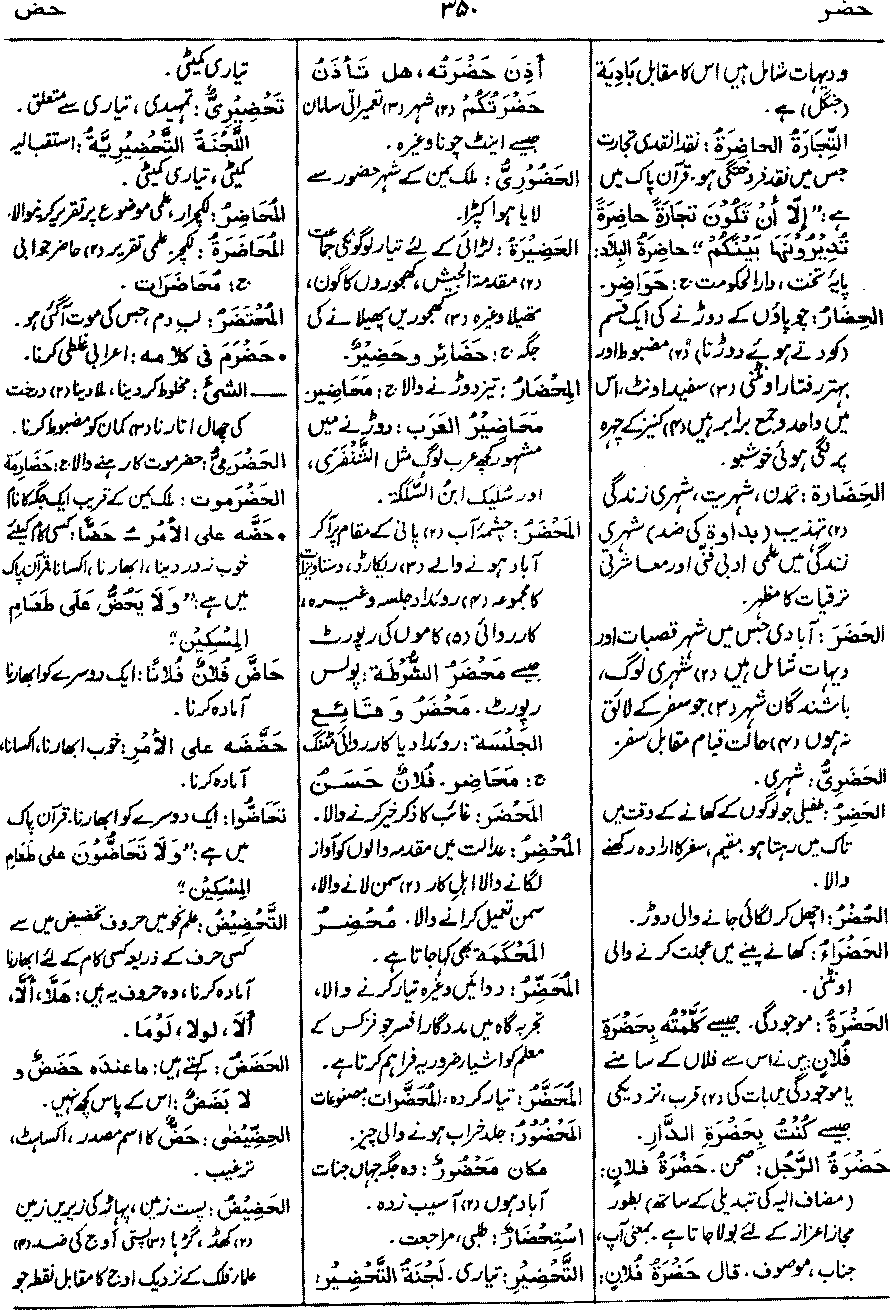 حضر
۳۵۰
حض
و دیہات شامل ہیں اس کا مقابل بَادِیَة
(جنگل) ہے۔
التِّجارَةُ الحاضِرَةُ: نقدا نقدی تجارت
جس میں نقد فروختگی ہو۔ قرآن پاک میں
ہے: "إِلَّا أَنْ تَكُونَ تِجَارَةً حاضِرَةً
تُدِيرُونَهَا بَيْنَكُمْ" حاضِرَةُ البِلَاد:
پایۂ تخت، دارالحکومت ج: حَوَاضِر۔
الحِضَارُ: چوپاؤں کے دوڑنے کی ایک قسم
(کودتے ہوئے دوڑنا) (۲) مضبوط اور
بہتر رفتار اونٹنی (۳) سفید اونٹ، اس
میں واحد و جمع برابر ہیں (۴) کنیز کے چہرہ
پر لگی ہوئی خوشبو۔
الحَضَارة: تمدن، شہریت، شہری زندگی
(۲) تہذیب (بداوة کی ضد) شہری
زندگی میں علمی ادبی فنی اور معاشرتی
ترقیات کا مظہر۔
الحَضَر: آبادی جس میں شہر قصبات اور
دیہات شامل ہیں (۲) شہری لوگ،
باشندگان شہر (۳) جو سفر کے لائق
نہ ہوں (۴) حالت قیام مقابل سفر۔
الحَضَرِیُّ: شہری۔
الحَضِرُ: طفیلی جو لوگوں کے کھانے کے وقت میں
تاک میں رہتا ہو۔ مقیم، سفر کا ارادہ رکھنے
والا۔
الحُضْرُ: اچھل کر لگائی جانے والی دوڑ۔
الحَضْرَاءُ: کھانے پینے میں عجلت کرنے والی
اونٹنی۔
الحَضْرَةُ: موجودگی۔ جیسے كَلَّمْتُه بِحَضْرَةِ
فُلَانٍ: میں نے اس سے فلاں کے سامنے
یا موجودگی میں بات کی (۲) قرب، نزدیکی
جیسے كُنْتُ بِحَضْرَةِ الدَّارِ۔
حَضْرَةُ الرَّجُل: صحن۔ حَضْرَةُ فلانٍ:
(مضاف الیہ کی تبدیلی کے ساتھ) بطور
مجاز اعزاز کے لئے بولا جاتا ہے۔ بمعنی آپ،
جناب، موصوف۔ قال حَضْرَةُ فُلَانٍ:
أَذِنَ حَضْرَتُه، هل تَأْذَنُ
حَضْرَتُكُمْ (۲) شہر (۳) تعمیراتی سامان
جیسے اینٹ چونا وغیرہ۔
الحَضُورِیُّ: ملک یمن کے شہر حضور سے
لایا ہوا کپڑا۔
الحَضِيرَةُ: لڑائی کے لئے تیار لوگوں کی جماعت
(۲) مقدمة الجیش، کھجوروں کا گون،
تھیلا وغیرہ (۳) کھجوریں پھیلانے کی
جگہ ج: حَضَائِر وحَضِيرٌ۔
المِحْضَارُ: تیز دوڑنے والا ج: مَحَاضِیر۔
مَحَاضِيرُ العَرَب: دوڑنے میں
مشہور کچھ عرب لوگ مثل الشَّنْفَرَى،
اور سُلَيك ابنُ السُّلَكَة۔
المَحْضَرُ: چشمۂ آب (۲) پانی کے مقام پر آکر
آباد ہونے والے (۳) ریکارڈ، دستاویزات
کا مجموعہ (۴) روئداد جلسہ وغیرہ،
کارروائی (۵) کاموں کی رپورٹ
جیسے مَحْضَرُ الشُّرْطَة: پولس
رپورٹ۔ مَحْضَرُ وَقَائِعِ
الجَلْسَة: روئداد یا کارروائی مٹنگ
ج: مَحَاضِر۔ فُلَانٌ حَسَنُ
المَحْضَر: غائب کا ذکر خیر کرنے والا۔
المُحْضِرُ: عدالت میں مقدمہ والوں کو آواز
لگانے والا اہل کار (۲) سمن لانے والا،
سمن تعمیل کرانے والا۔ مُحْضِرُ
المَحْكَمَة بھی کہا جاتا ہے۔
المُحَضِّرُ: دوائیں وغیرہ تیار کرنے والا،
تجربہ گاہ میں مددگار افسر جو فزکس کے
معلم کو اشیاء ضروریہ فراہم کرتا ہے۔
المُحَضَّرُ: تیار کردہ، المُحَضَّرات: مصنوعات
المَحْضُورُ: جلد خراب ہونے والی چیز۔
مکان مَحْضُورٌ: وہ جگہ جہاں جنات
آباد ہوں (۲) آسیب زدہ۔
اسْتِحْضَارٌ: طلبی، مراجعت۔
التَّحْضِيرُ: تیاری۔ لَجْنَةُ التَّحْضِير:
تیاری کمیٹی۔
تَحْضِيرِیٌّ: تمہیدی، تیاری سے متعلق۔
اللَّجْنَةُ التَّحْضِيرِيَّةُ: استقبالیہ
کمیٹی، تیاری کمیٹی۔
المُحَاضِرُ: لکچرار، علمی موضوع پر تقریر کرنیوالا۔
المُحَاضَرَةُ: لکچر، علمی تقریر (۲) حاضر جوابی
ج: مُحَاضَرَات۔
المُحْتَضَرُ: لب دم، جس کی موت آگئی ہو۔
• حَضْرَمَ فی كلامه: اعرابی غلطی کرنا۔
— الشئَ: مخلوط کر دینا، ملا دینا (۲) درخت
کی چھال اتارنا (۳) کمان کو مضبوط کرنا۔
الحَضْرَمِیُّ: حضرموت کا رہنے والا ج: حَضَارِمَة
الحَضْرَموت: ملک یمن کے قریب ایک جگہ کا نام
• حَضَّه على الأَمْرِ ـُ حَضًّا: کسی کام کیلئے
خوب زور دینا، ابھارنا، اکسانا۔ قرآن پاک
میں ہے: "وَلَا يَحُضُّ عَلَى طَعَامِ
الْمِسْكِيْنِ"
حَاضَّ فُلَانٌ فُلَانًا: ایک دوسرے کو ابھارنا
آمادہ کرنا۔
حَضَّضَه على الأَمْرِ: خوب ابھارنا، اکسانا،
آمادہ کرنا۔
تَحَاضُّوا: ایک دوسرے کو ابھارنا، قرآن پاک
میں ہے: "وَلَا تَحَاضُّوْنَ على طَعَامِ
الْمِسْكِيْن"
التَّحْضِيضُ: علم نحو میں حروف تخفیض میں سے
کسی حرف کے ذریعہ کسی کام کے لئے ابھارنا
آمادہ کرنا، وہ حروف یہ ہیں: هَلَّا، أَلَّا،
أَلَا، لولا، لَوْمَا۔
الحَضَضُ: کہتے ہیں: ماعندَه حَضَضٌ و
لا بَضَضٌ: اس کے پاس کچھ نہیں۔
الحِضِّيْضٰى: حَضٌّ کا اسم مصدر، اکساہٹ،
ترغیب۔
الحَضِيضُ: پست زمین، پہاڑ کی زیریں زمین
(۲) کھڈ، گڑہا (۳) پستی اَوج کی ضد (۴)
علماء فلک کے نزدیک اوج کا مقابل نقطہ جو